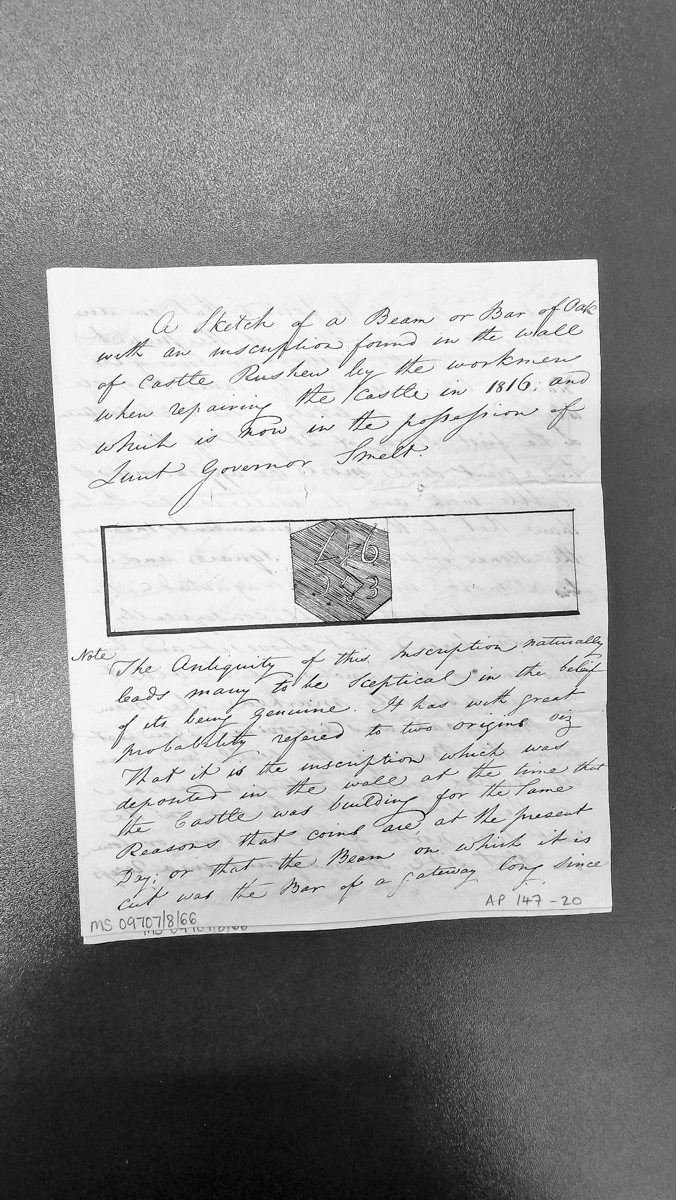 A Sketch of a Beam or Bar of Oak
with an inscription found in the wall
of Castle Rushen by the workmen
when repairing the Castle in 1816; and
which is now in the possession of
Lieut Governor Smelt.
Note
The Antiquity of this Inscription naturally
leads many to be sceptical in the beleif
of its being genuine. It has with great
probability refered to two origins viz
That it is the inscription which was
deposited in the wall at the time that
the Castle was building for the same
Reasons that coins are, at the present
Day; or that the Beam on which it is
cut was the Bar of a gateway long since
MS 09707/8/66
AP 147-20